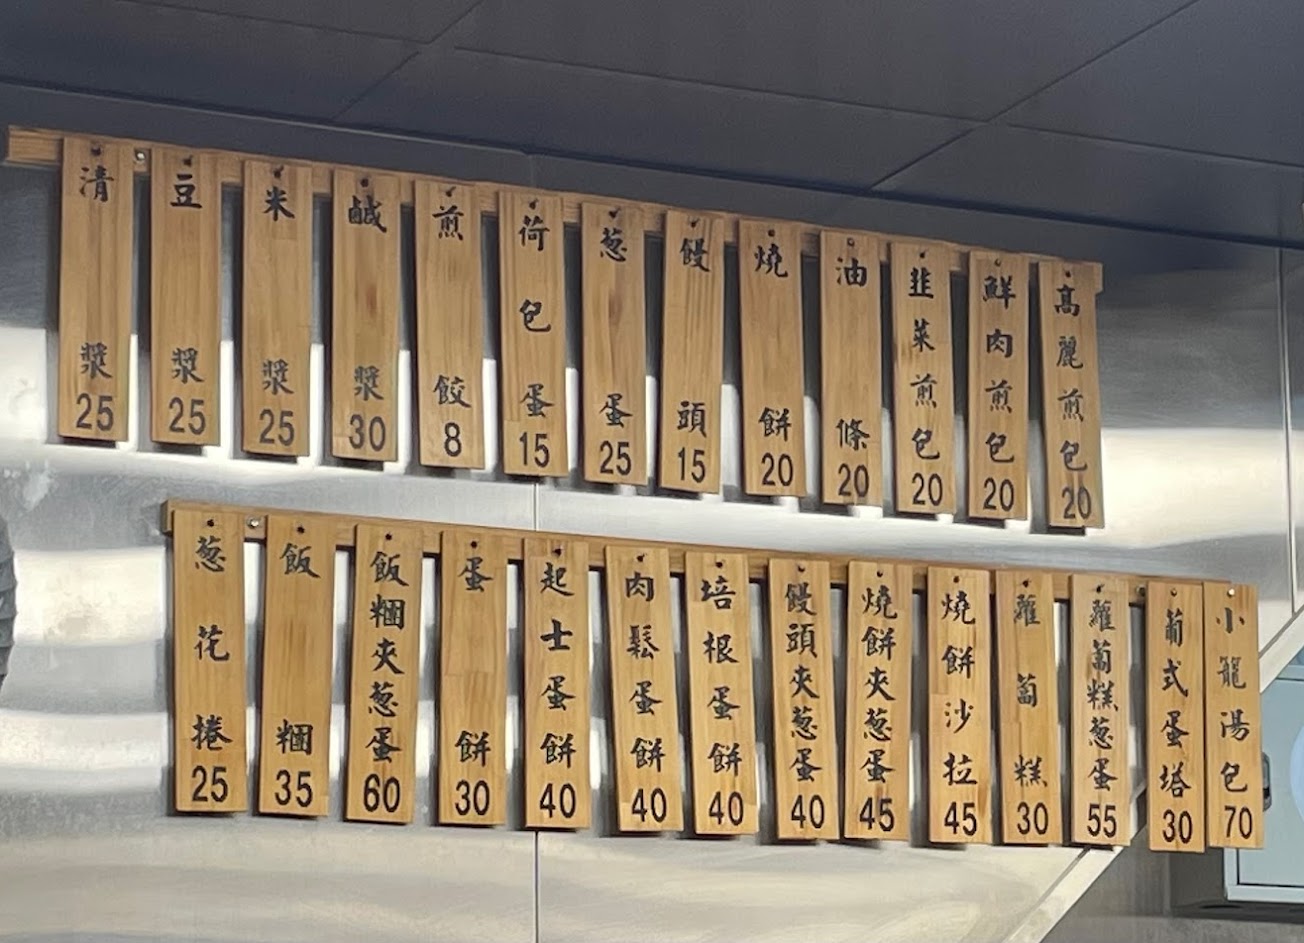 清漿25
豆漿25
米漿25
鹹漿30
煎餃8
荷包蛋15
葱蛋25
饅頭15
燒餅20
油條20
韭菜煎包20
鮮肉煎包20
高麗煎包20
葱花捲25
飯糰35
飯糰夾葱蛋60
蛋餅30
起士蛋餅40
肉鬆蛋餅40
培根蛋餅40
饅頭夾葱蛋40
燒餅夾葱蛋45
燒餅沙拉45
蘿蔔糕30
蘿蔔糕葱蛋55
葡式蛋塔30
小籠湯包70